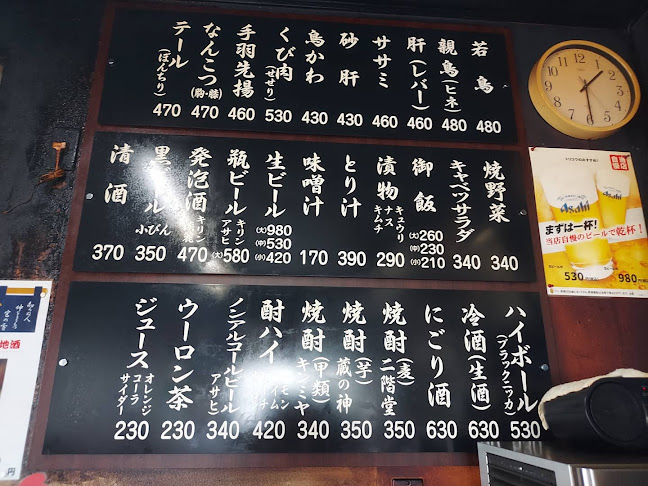 若鳥 480
親鳥(ヒネ) 480
肝(レバー) 460
ササミ 460
砂肝 430
鳥かわ 430
くび肉(せせり) 530
手羽先揚 460
なんこつ(胸・膝) 470
テール(ぼんちり) 470
焼野菜 340
キャベツサラダ 340
御飯 (大)260 (中)230 (小)210
漬物 キュウリ ナス キムチ 290
とり汁 390
味噌汁 170
生ビール (大)980 (中)530 (小)420
瓶ビール キリン アサヒ (大)580
発泡酒 キリン 470
黒ビール 小びん 350
清酒 370
ハイボール(ブラックニッカ) 530
冷酒(生酒) 630
にごり酒 630
焼酎(麦)二階堂 350
焼酎(芋)蔵の神 350
焼酎(甲類)キンミヤ 340
酎ハイ 420
ノンアルコールビール アサヒ 340
ウーロン茶 230
ジュース オレンジ コーラ サイダー 230
当店自慢
Asahi
Asahi
まずは一杯!
当店自慢のビールで乾杯!
530円
980円
地酒
円